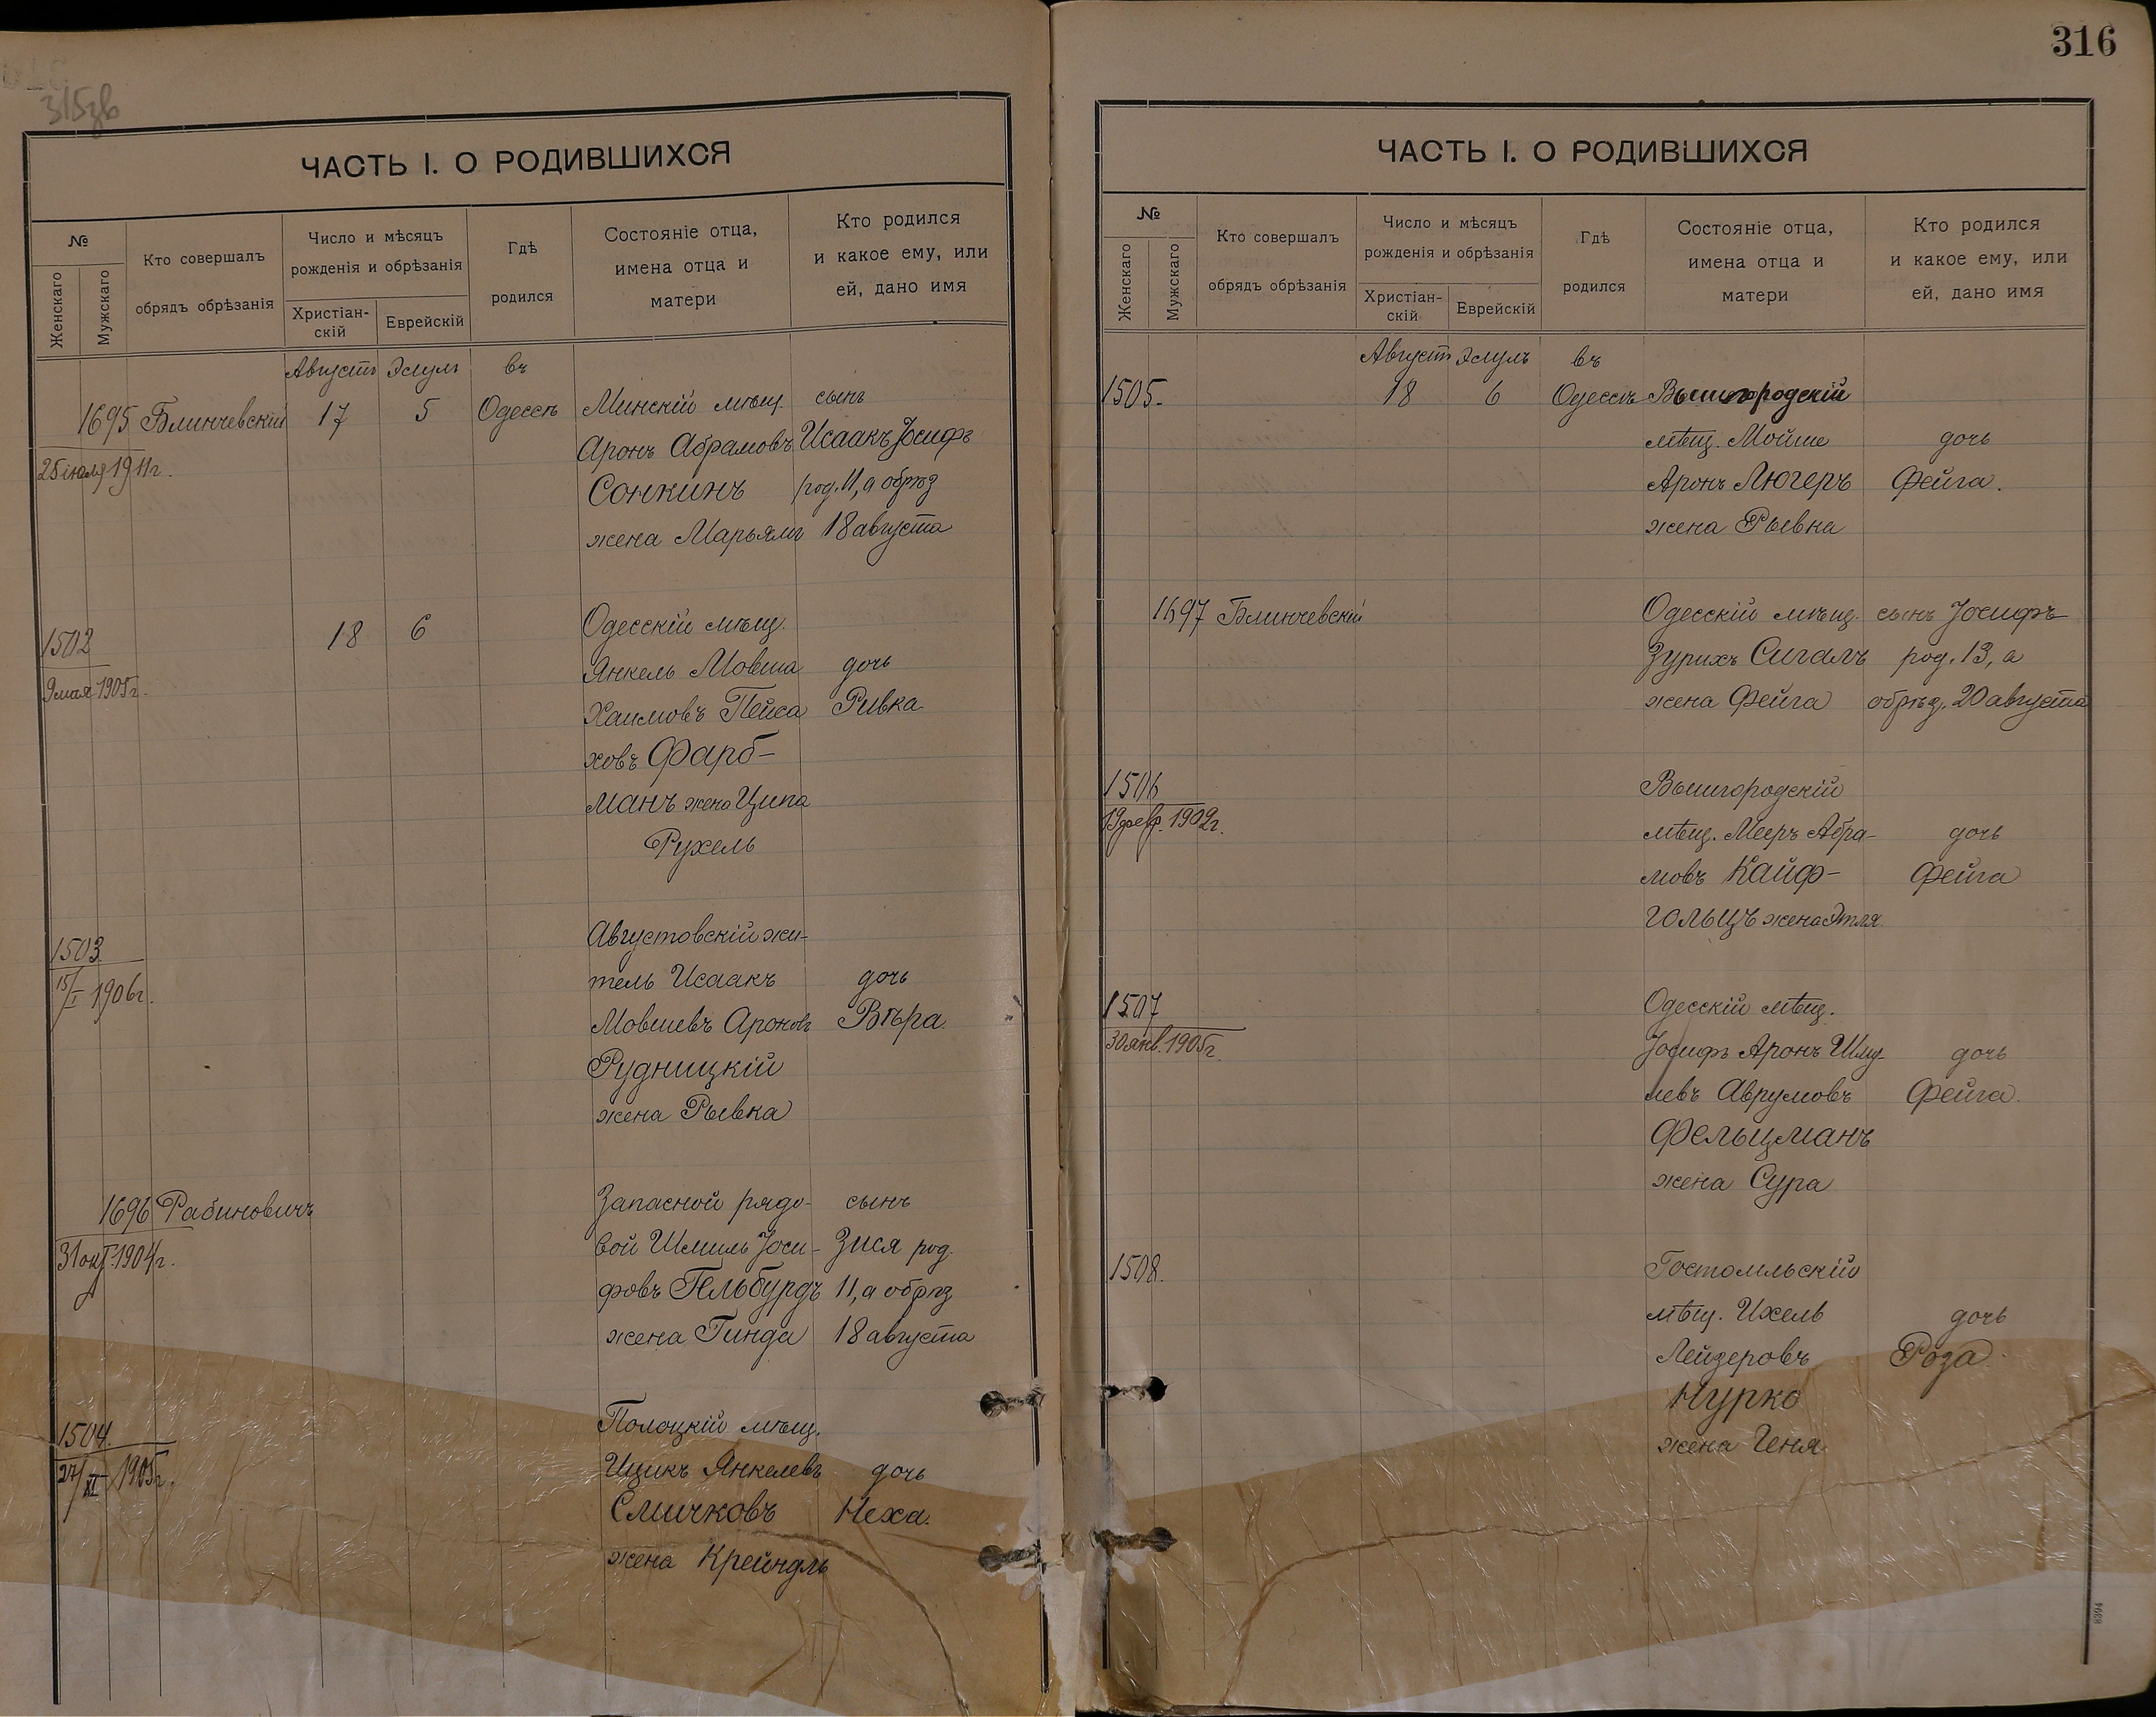 315зв
ЧАСТЬ I. О РОДИВШИХСЯ
№
Женскаго
Мужскаго
Кто совершалъ
обрядъ обрѣзанія
Число и мѣсяцъ
рожденія и обрѣзанія
Христіан-
скій
Еврейскій
Гдѣ
родился
Состояніе отца,
имена отца и
матери
Кто родился
и какое ему, или
ей, дано имя
Августъ Элулъ въ
1695 Блинчевскій 17 5 Одессѣ Минскій мѣщ. сынъ
Аронъ Абрамовъ Исаакъ Іосифъ
25 іюля 1911г. Сонкинъ род. 11, а обрѣз
жена Марьямъ 18 августа
1502 18 6 Одесскій мѣщ.
9 мая 1905г. Янкель Мовша дочь
Хаимовъ Пейса Ривка
ховъ Фарб-
манъ жена Ципа
Рухель
1503 Августовскій жи-
15/I 1906г. тель Исаакъ дочь
Мовшевъ Ароновъ Вѣра.
Рудницкій
жена Рывка
1696 Рабиновичъ Запасной рядо- сынъ
31 окт. 1904г. вой Шмиль Іоси- Зися род.
фовъ Гельбурдъ 11, а обрѣз
жена Гинда 18 августа
1504. Полоцкій мѣщ.
27/XI 1905г. Ицикъ Янкелевъ дочь
Смичковъ Неха.
жена Крейндль
316
ЧАСТЬ I. О РОДИВШИХСЯ
№
Женскаго
Мужскаго
Кто совершалъ
обрядъ обрѣзанія
Число и мѣсяцъ
рожденія и обрѣзанія
Христіан-
скій
Еврейскій
Гдѣ
родился
Состояніе отца,
имена отца и
матери
Кто родился
и какое ему, или
ей, дано имя
Августъ Элулъ въ
1505. 18 6 Одессѣ Вышгородскій
мѣщ. Мойше дочь
Аронъ Люгеръ Фейга.
жена Рывка
1697 Блинчевскій Одесскій мѣщ. сынъ Іосифъ
Зурихъ Сигалъ род. 13, а
жена Фейга обрѣз. 20 августа
1506 Вышгородскій
19 февр. 1902г. мѣщ. Мееръ Абра- дочь
мовъ Кайф- Фейга
гольцъ жена Этля.
1507 Одесскій мѣщ.
30 янв. 1905г. Іосифъ Аронъ Шму- дочь
левъ Аврумовъ Фейга.
Фельцманъ
жена Сура
1508. Гостомльскій
мѣщ. Ихель дочь
Лейзеровъ Роза.
Нурко
жена Геня
8394